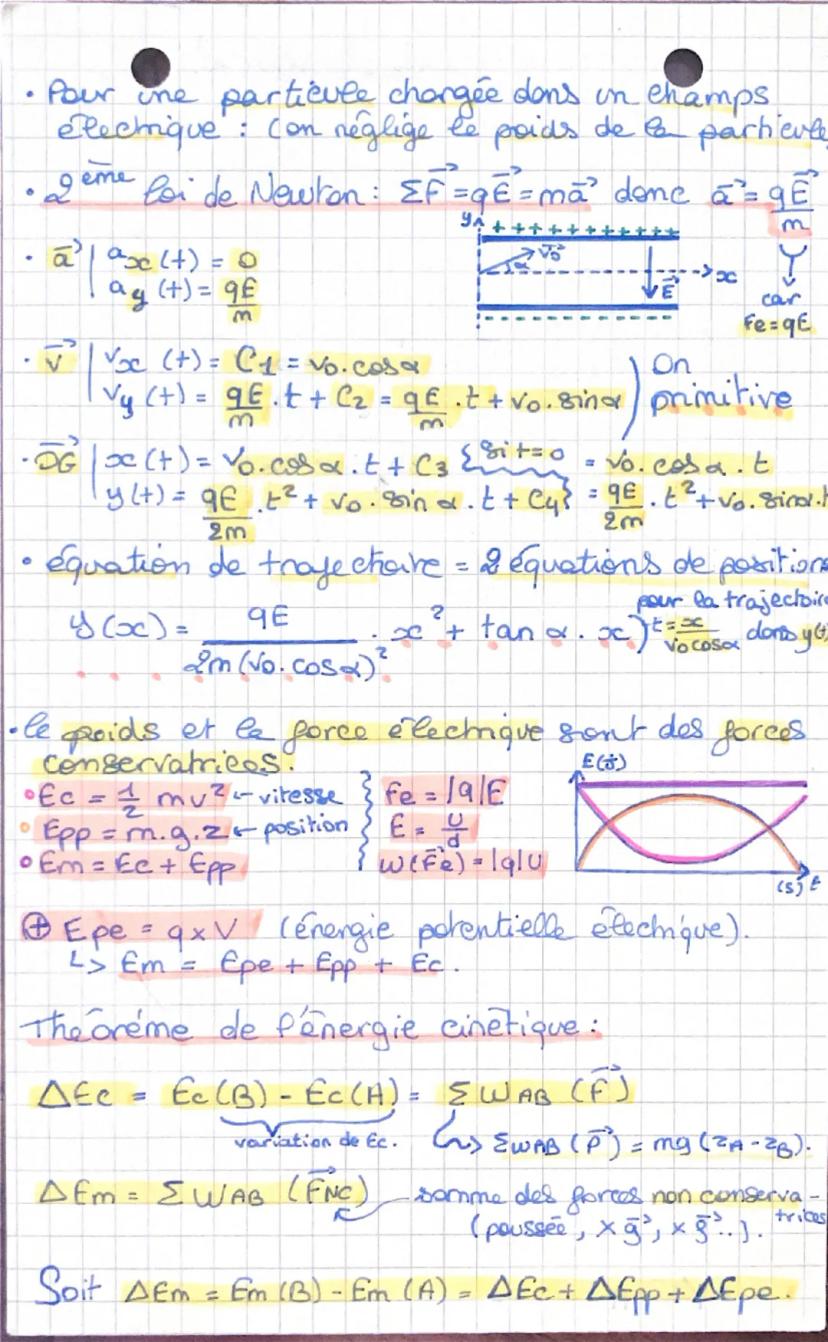 • Pour une particule chargée dans un champs
électrique : (on néglige le poids de la particule
• 2ème loi de Newton : ΣF⃗ = qE⃗ = ma⃗ donc a⃗ = qE⃗/m
car
Fe = qE
y + + + + + + + + + + + +
v₀⃗ α x
E⃗
- - - - - - - - - - - -
• a⃗ | ax(t) = 0
ay(t) = qE/m
• v⃗ | vx(t) = C1 = v0.cosα
vy(t) = qE/m . t + C2 = qE/m . t + v0.sinα ) On primitive
• OG⃗ | x(t) = v0.cosα . t + C3 { si t=0 = v0.cosα . t
y(t) = qE/2m . t² + v0.sinα . t + C4 } = qE/2m . t² + v0.sinα.t
• équation de trajectoire = 2 équations de position
pour la trajectoire
y(x) = qE/2m(v0.cosα)² . x² + tanα . x ) t = x/v0cosα dans y(t)
• le poids et la force électrique sont des forces
conservatrices.
• Ec = 1/2 mv² ← vitesse } Fe = |q|E
• Epp = m.g.z ← position } E = U/d
• Em = Ec + Epp } W(Fe⃗) = |q|U
E(J)
(s) t
⊕ Epe = q x V (énergie potentielle électrique).
↳ Em = Epe + Epp + Ec.
Théoréme de l'énergie cinétique :
ΔEc = Ec(B) - Ec(A) = Σ WAB (F⃗)
variation de Ec. ↳ ΣWAB (P⃗) = mg(zA-zB).
ΔEm = Σ WAB (FNC⃗) somme des forces non conserva-
trices
(poussée, x g⃗, x f⃗...).
Soit ΔEm = Em(B) - Em(A) = ΔEc + ΔEpp + ΔEpe.